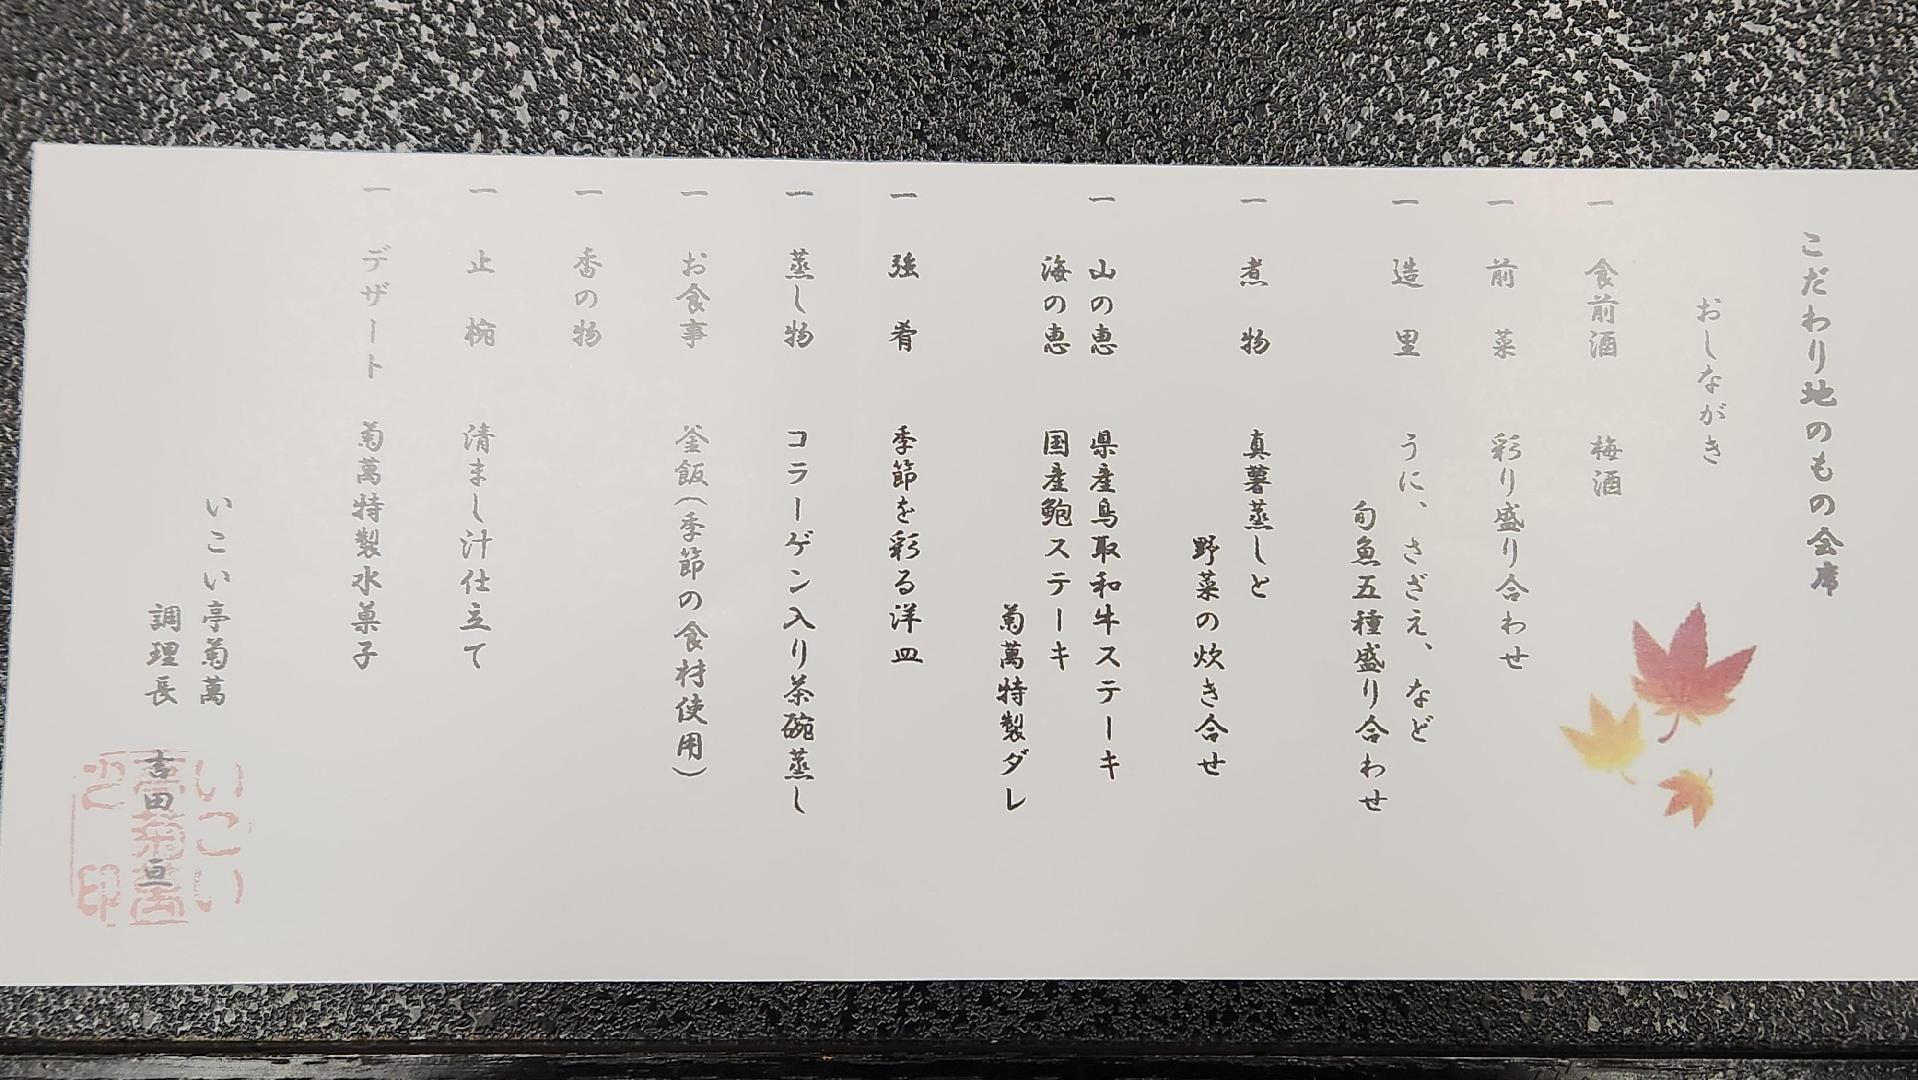 こだわり地のもの会席
おしながき
一 食前酒 梅酒
一 前菜 彩り盛り合わせ
一 造里 うに、さざえ、など
旬魚五種盛り合わせ
一 煮物 真薯蒸しと
野菜の炊き合せ
一 山の恵 県産鳥取和牛ステーキ
海の恵 国産鮑ステーキ
菊萬特製ダレ
一 強肴 季節を彩る洋皿
一 蒸し物 コラーゲン入り茶碗蒸し
一 お食事 釜飯(季節の食材使用)
一 香の物
一 止椀 清まし汁仕立て
一 デザート 菊萬特製水菓子
いこい亭菊萬
調理長 吉田 亘
いこい
亭菊萬
之印